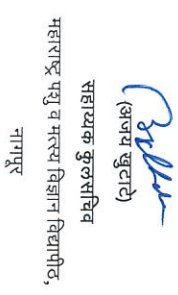 (अजय खुटाटे)
सहाय्यक कुलसचिव
महाराष्ट्र पशु व मत्स्य विज्ञान विद्यापीठ,
नागपूर